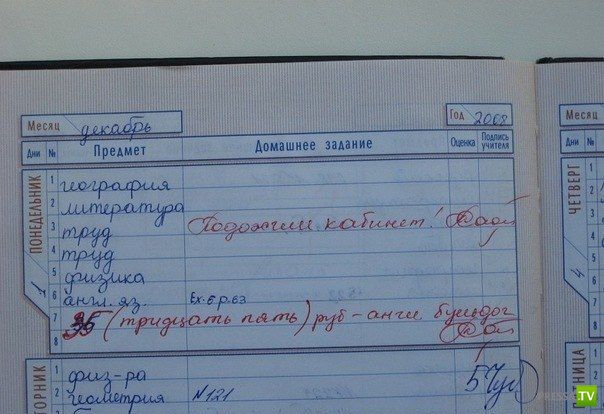 Месяц декабрь Год 2008 Месяц
Дни № Предмет Домашнее задание Оценка Подпись учителя Дни №
ПОНЕДЕЛЬНИК
1
1 география
2 литература
3 труд Подожгли кабинет!
4 труд
5 физика
6 англ. яз. Ex. 6 p. 63
7 35 (тридцать пять) руб - англ. бульдог
8
ТОРНИК
1 физ-ра 5
2 геометрия №121
ЧЕТВЕРГ
4
1
2
3
4
5
6
7
8
НИЦА
1
2
.TV